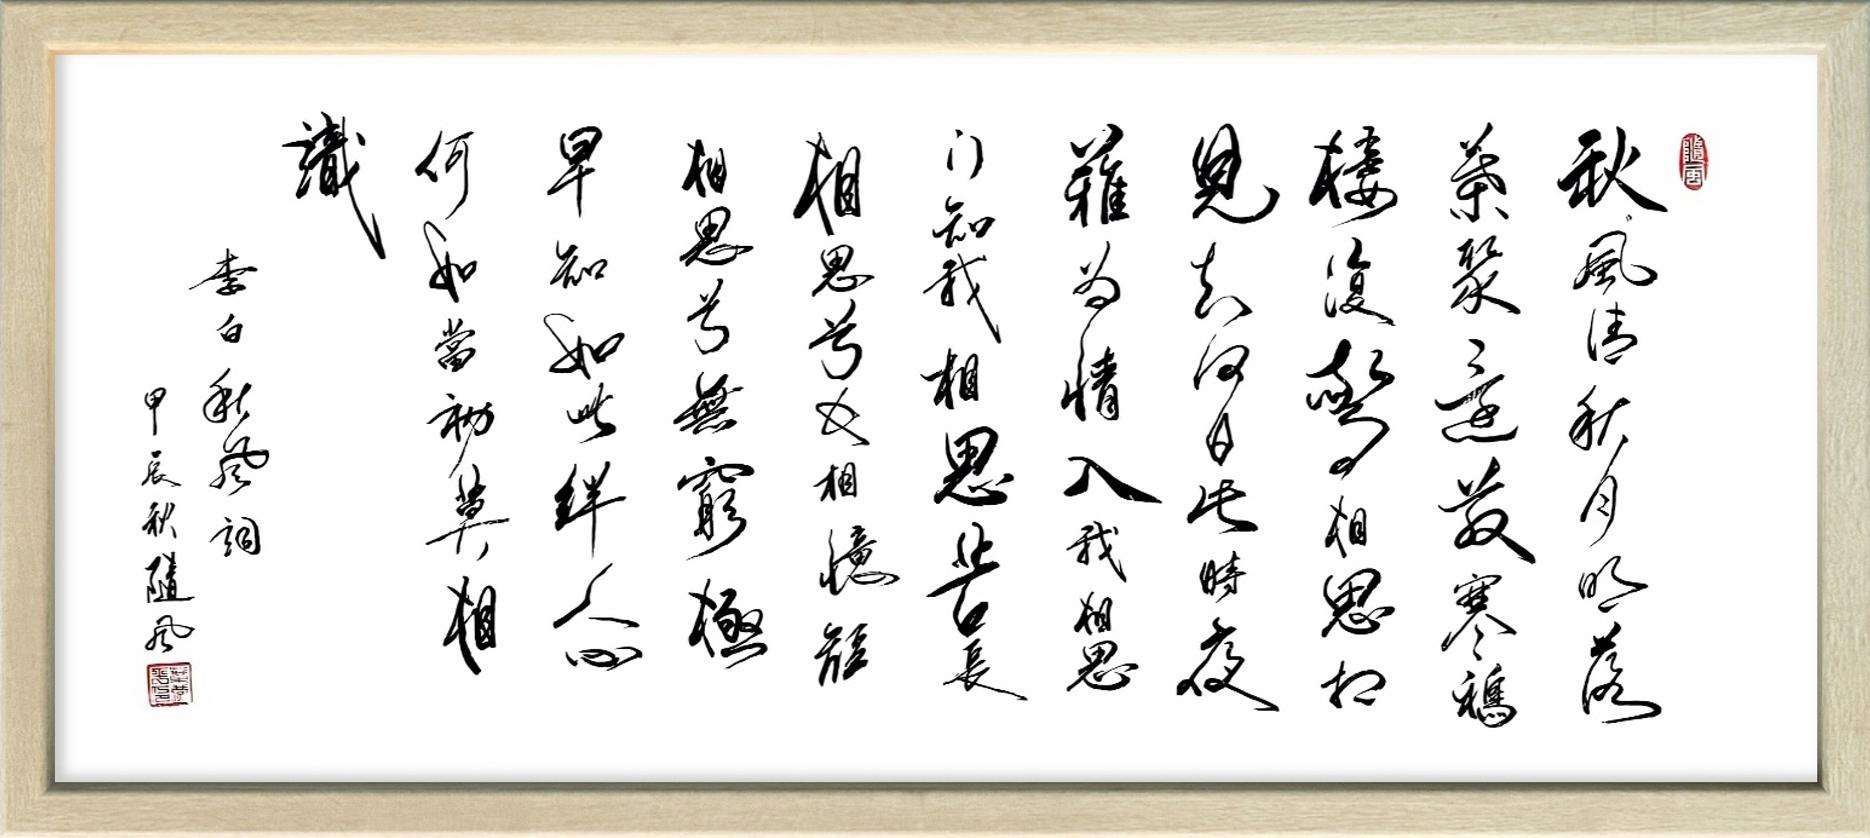 秋風清秋月明落
葉聚還散寒鴉
棲復驚相思相
見知何日此時夜
難为情入我相思
门知我相思苦長
相思兮长相憶短
相思兮無窮極
早知如此絆人心
何如當初莫相
識
李白秋风詞
甲辰秋隨风